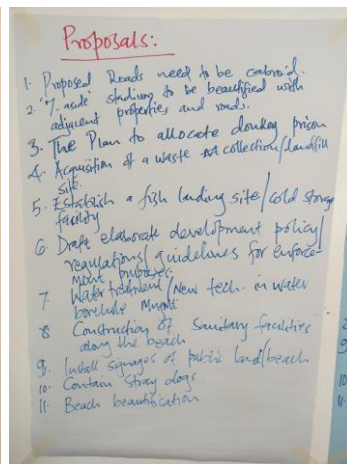 Proposals:
1. Proposed Roads need to be cabroid.
2. '7-aside' stadium to be beautified with
adjacent properties and roads.
3. The Plan to allocate donkey prison
4. Acquisition of a waste collection/landfill
site.
5. Establish a fish landing site/cold storage
facility
6. Draft elaborate development policy/
regulations/guidelines for enforce-
ment purposes.
7. Water treatment/New tech. in water
borehole Mngmt
8 Construction of Sanitary facilities
along the beach
9. Install signages of public land/beach
10. Contain stray dogs
11. Beach beautification